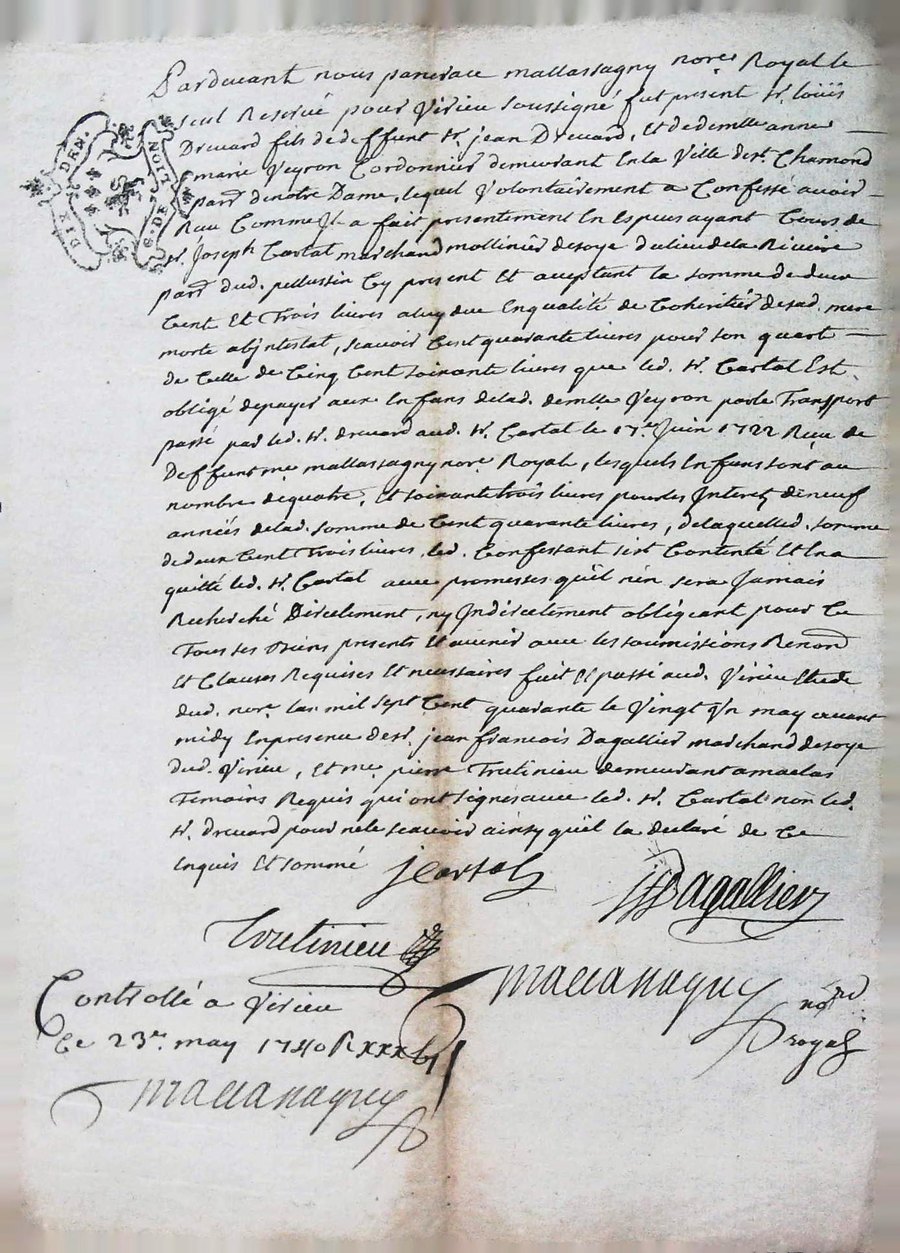 Pardevant nous pancrace mallassagny nore Royal le
seul Reservé pour Virieu soussigné fut present sr. loüis
Drevard fils de deffunt sr. jean Drevard, Et de demlle anne
marie Veyron Cordonnier demeurant En la Ville de st. Chamond
parr. de notre Dame, lequel Volontairement a Confessé avoir
Rcu Comme Il a fait presentement En Especes ayant Cours de
sr. Joseph Cartal marchand mollinier de soye du lieu de la Riviere
parr. dud. pellussin Cy present Et aceptant la somme de deux
Cent Et Trois livres a luy due En qualité de Coheritier de sad. mere
morte abjntestat, scavoir Cent quarante livres pour son quart
de Celle de Cinq Cent soixante livres que led. sr. Cartal Est
obligé de payer aux Enfans de lad. demlle Veyron par le Transport
passé par led. sr. drevard aud. sr. Cartal le 17e Juin 1722 Reçu de
Deffunt me mallassagny nore Royal, lesquels Enfans sont au
nombre de quatre, Et soixante trois livres pour les Interets de neuf
années de lad. somme de Cent quarante livres, de laquelle d. somme
de deux Cent Trois livres, led. Confessant s'est Contenté Et En a
quitté led. sr. Cartal avec promesses qu'il n'en sera Jamais
Recherché Directement, ny Indirectement obligeant pour Ce
Tous ses Biens presents Et avenir avec les soumissions Renond
Et Clauses Requises Et necessaires fait Et passé aud. Virieu Etude
dud. nore lan mil sept Cent quarante le Vingt Un may avant
midy En presence de sr. jean francois Dagallier marchand de soye
dud. Virieu, Et me pierre Trutinieu demeurant a maclas
Temoins Requis qui ont signes avec led. sr. Cartal non led.
sr. drevard pour ne le scavoir ainsy qu'il la declaré de Ce
Enquis Et sommé
jCartal
jfDagallier
Trutinieu
Mallassagny nore royal
Controllé a Virieu
Ce 23e may 1740 R xxx
Mallassagny
DIX DEN.
G. DE LION